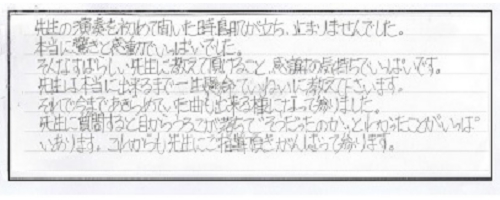 先生の演奏を初めて聞いた時鳥肌が立ち、止まりませんでした。
本当に驚きと感動でいっぱいでした。
そんなすばらしい先生に教えて頂けること、感謝の気持ちでいっぱいです。
先生は本当に出来るまで一生懸命ていねいに教えて下さいます。
それで今まであきらめていた曲も出来る様になって参りました。
先生に質問すると目からうろこが落ちて"そうだったのか"とわかったことがいっぱ
いあります。これからも先生にご指導頂きがんばって参ります。